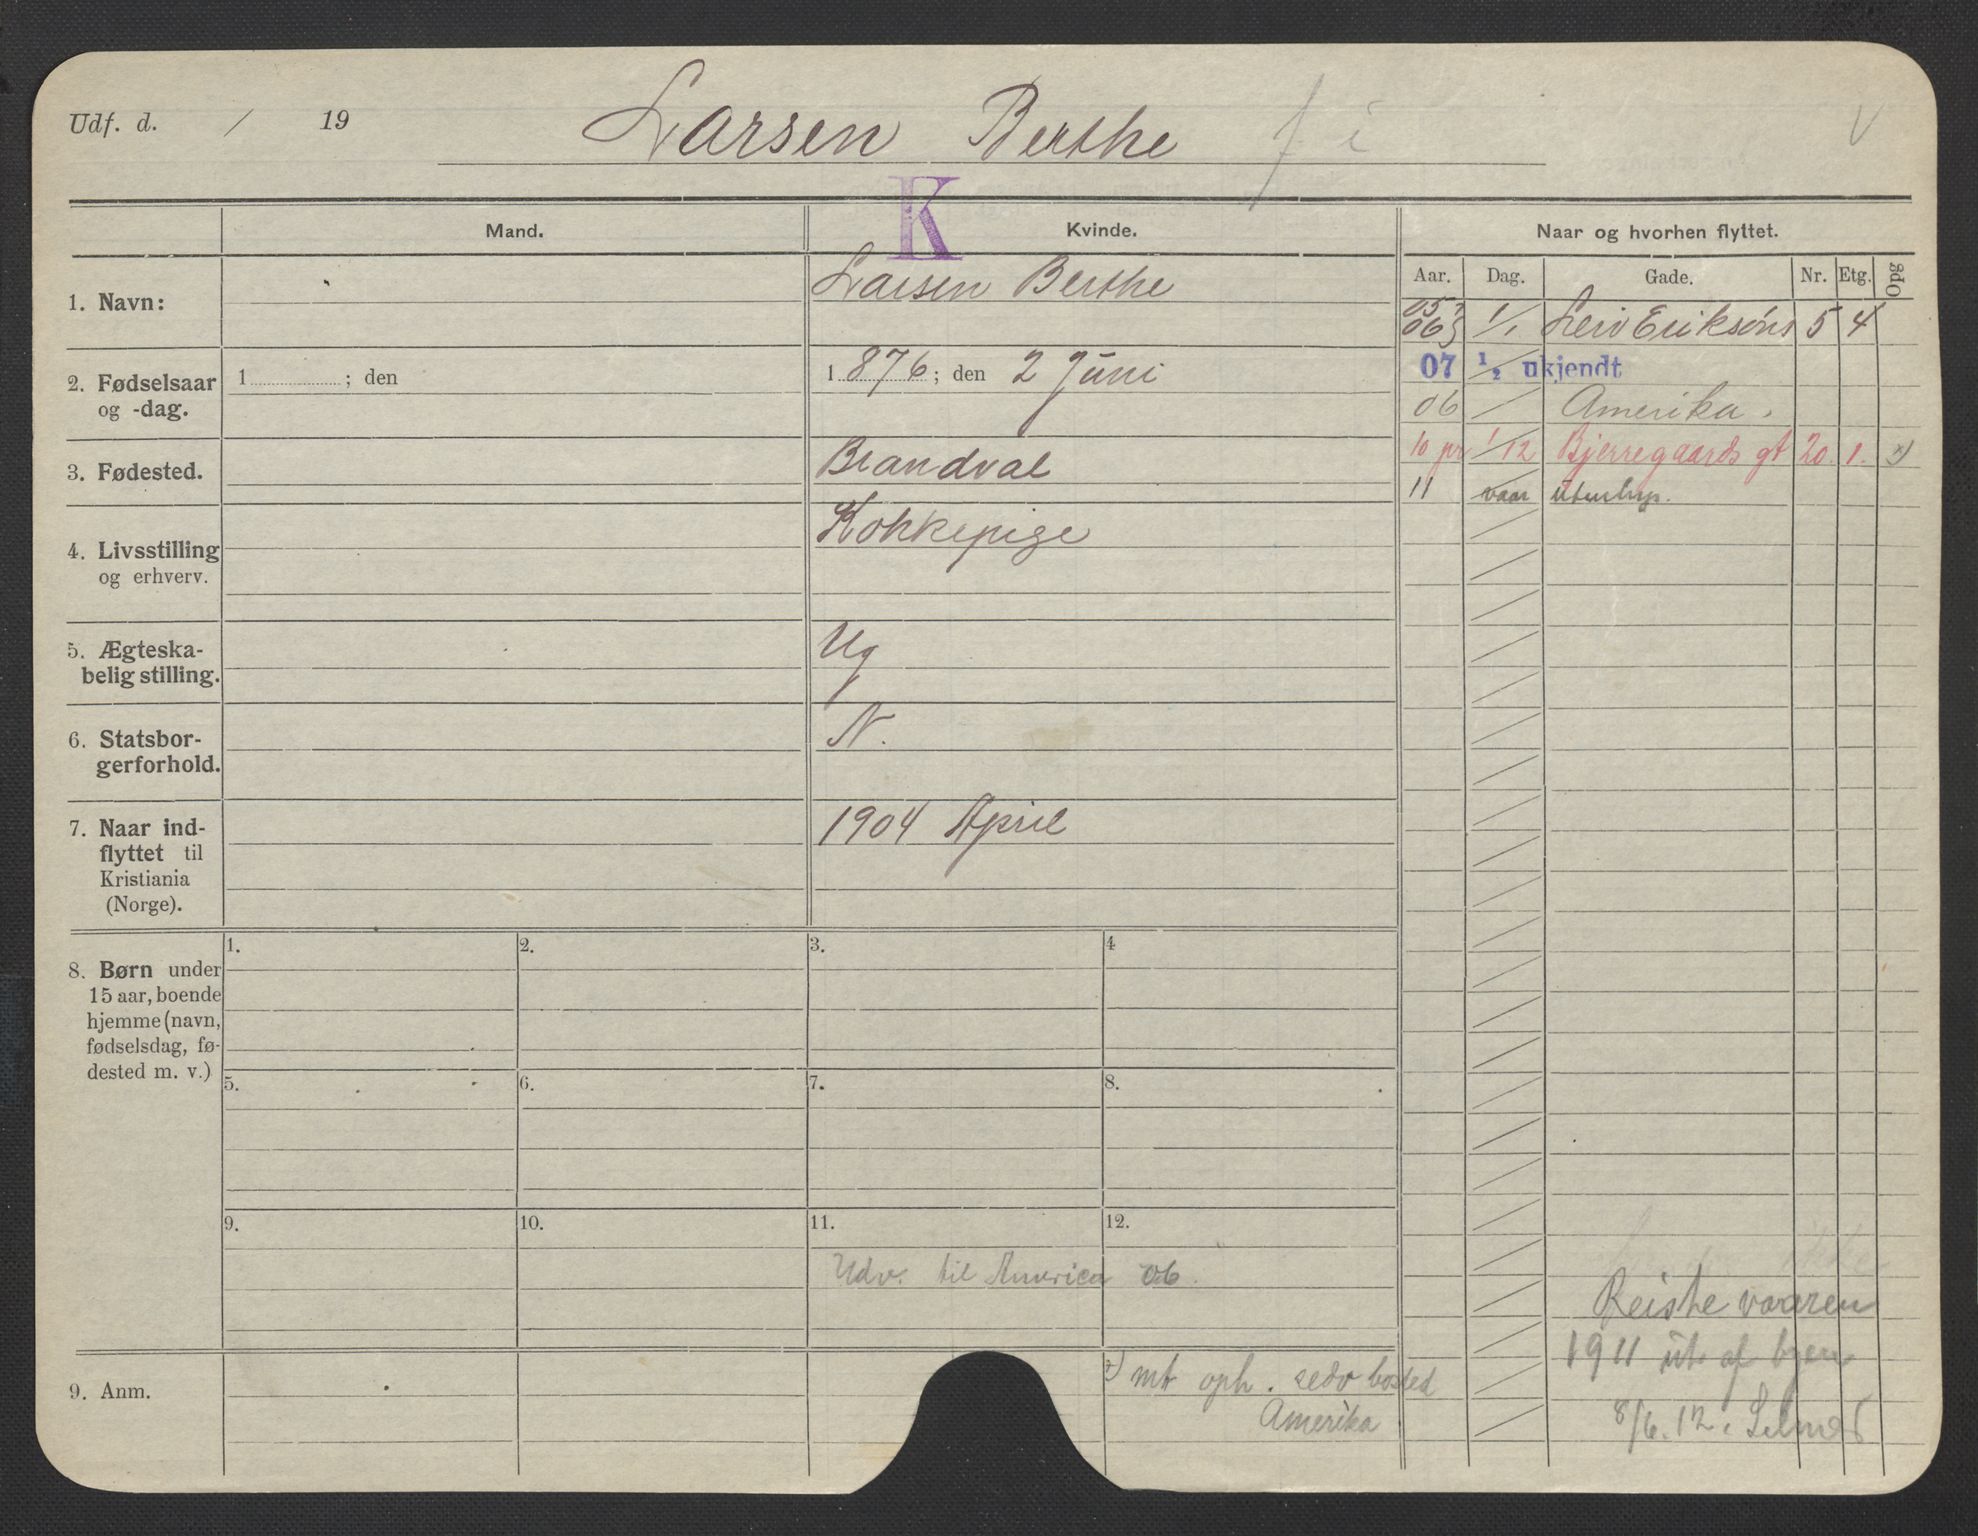 Udf. d. / 19
Larsen Berthe
K
Mand.
Kvinde.
Naar og hvorhen flyttet.
Aar. Dag. Gade. Nr. Etg. Opg
1. Navn:
Larsen Berthe
2. Fødselsaar
og -dag.
1 ; den
1 876 ; den 2 Juni
3. Fødested.
Brandval
4. Livsstilling
og erhverv.
Kokkepige
5. Ægteska-
belig stilling.
Ug
6. Statsbor-
gerforhold.
N.
7. Naar ind-
flyttet til
Kristiania
(Norge).
1904 April
05
06 1/1 Leiv Eriksøns 5 4
07 1/2 ukjendt
06 / Amerika.
10 pr 1/12 Bjerregaards gt 20. 1. x)
11 vaar utenbys.
8. Børn under
15 aar, boende
hjemme (navn,
fødselsdag, fø-
dested m. v.)
1. 2. 3. 4
5. 6. 7. 8.
9. 10. 11. 12.
Udv. til America 06.
9. Anm.
x) mt oph. sedv bosted
Amerika.
Reiste vaaren
1911 ut af byen
8/6. 12.